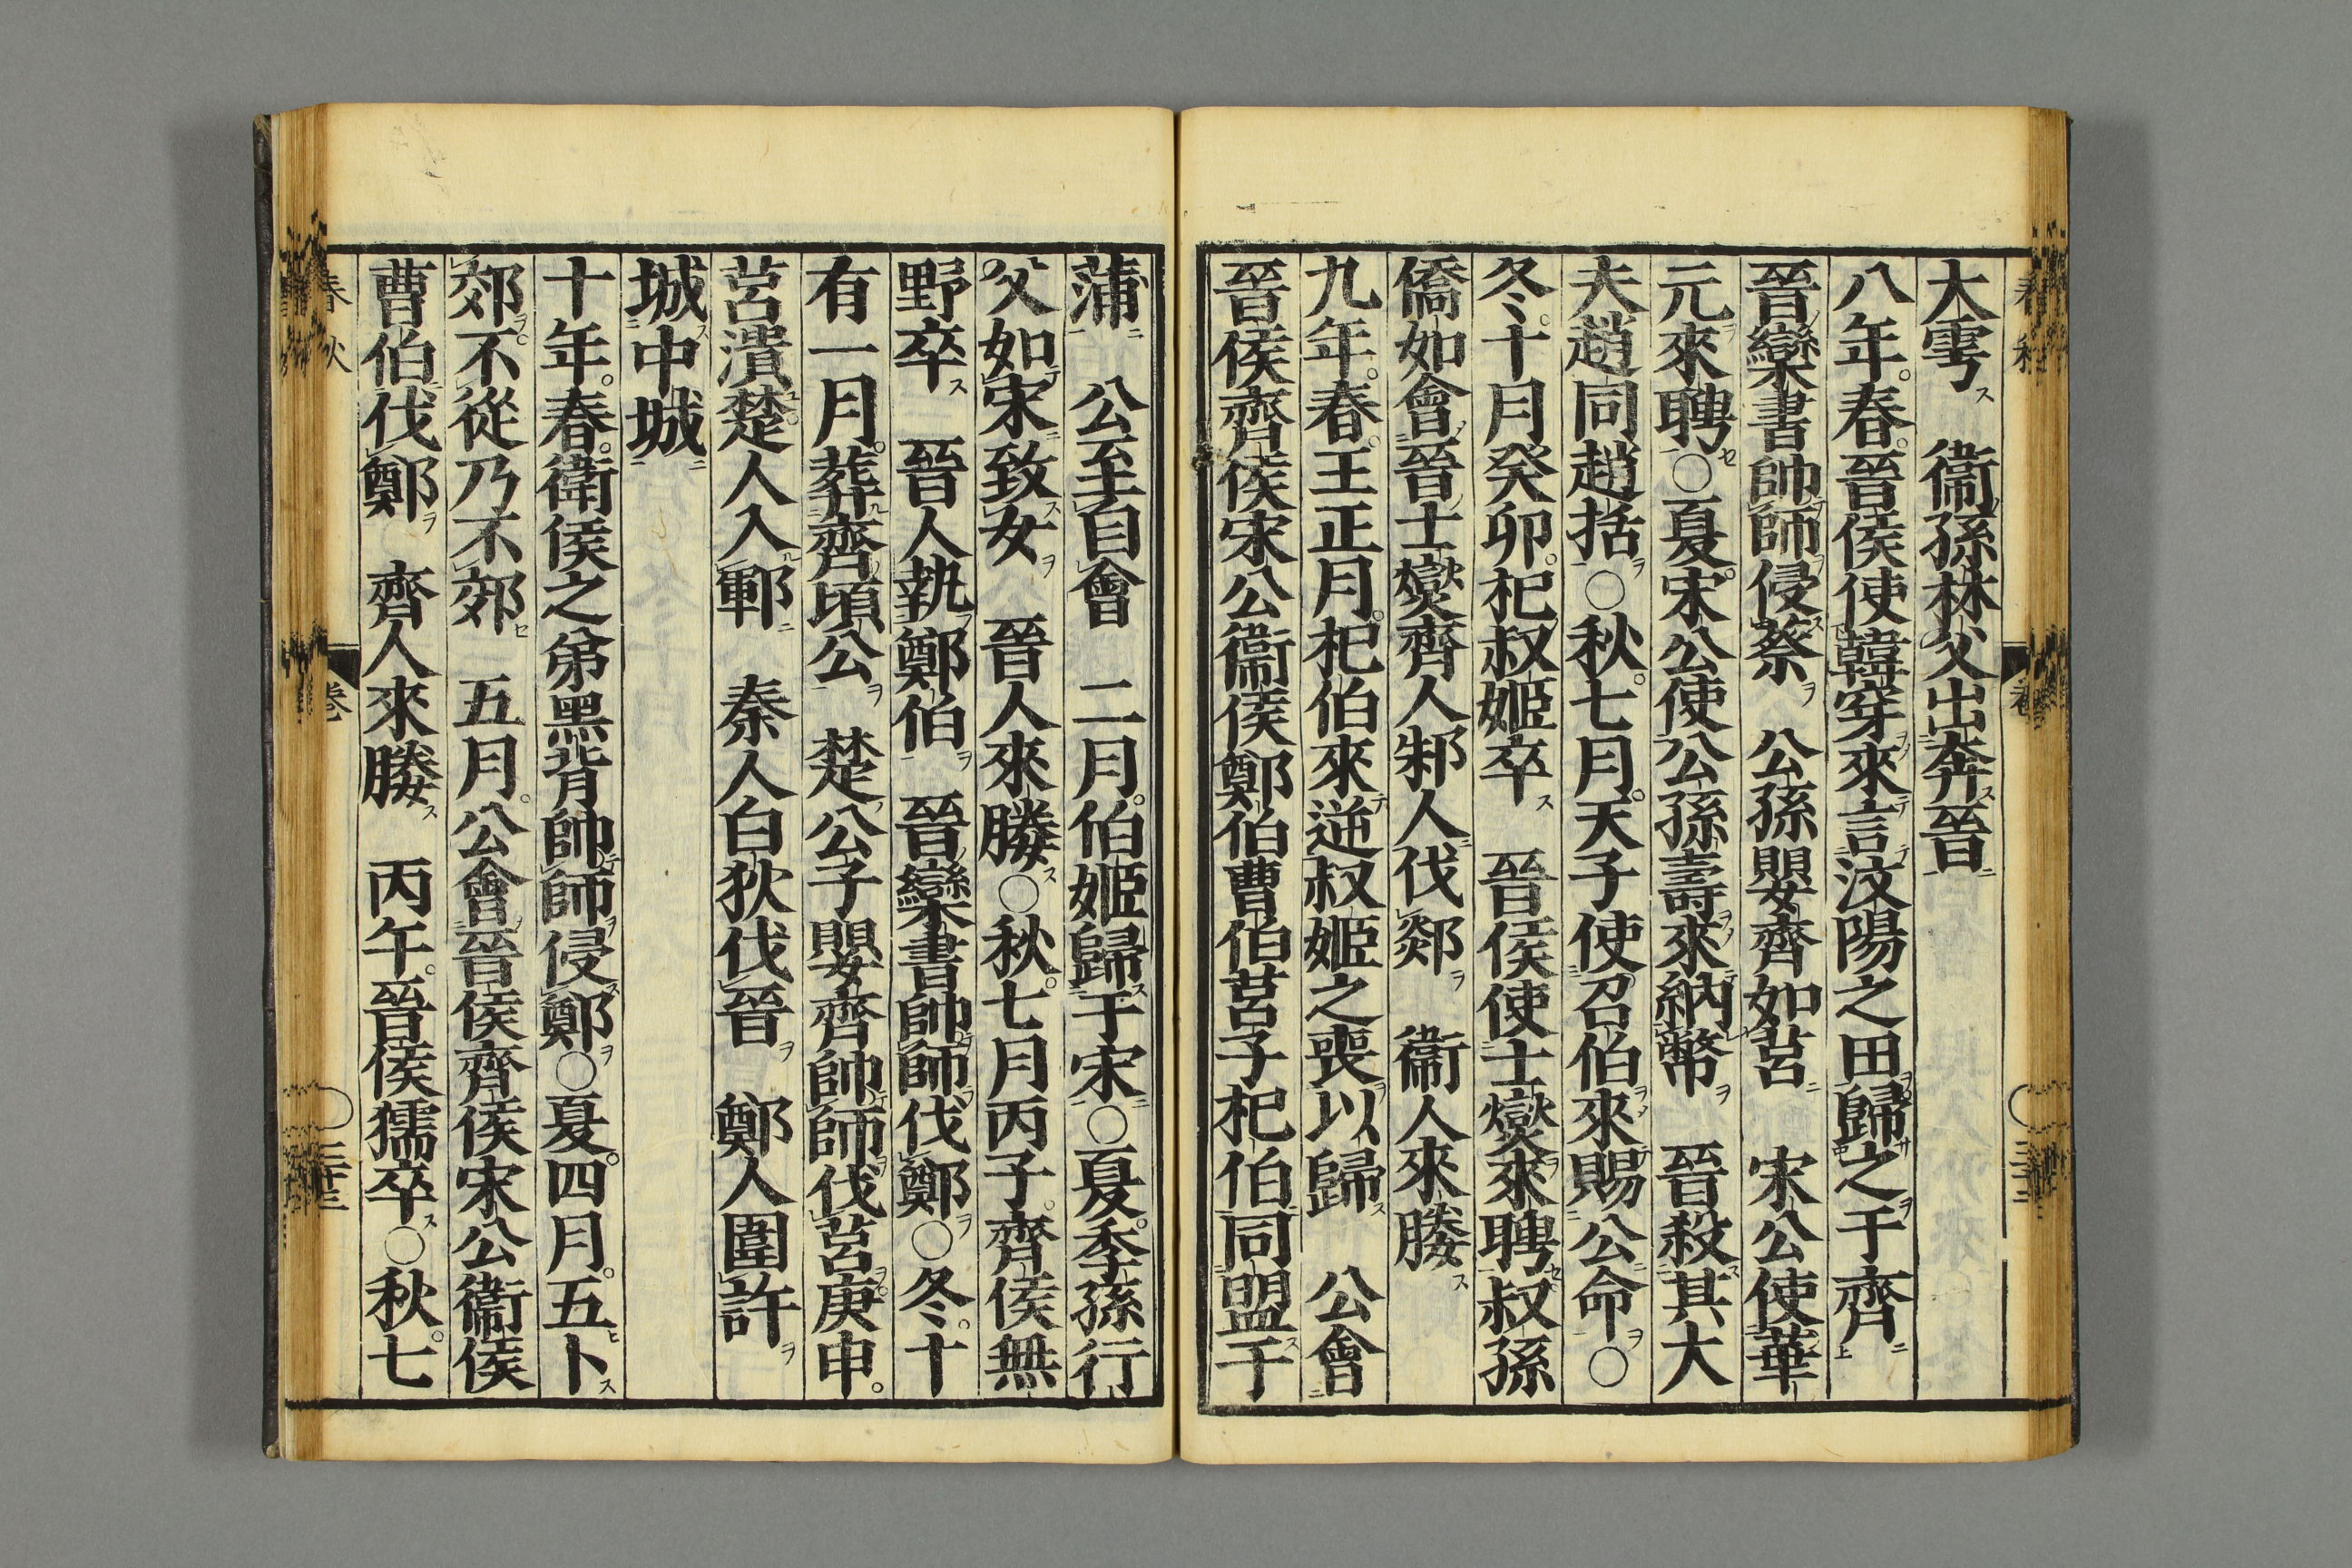 大雩　衞孫林父出奔晉
八年春晉侯使韓穿來言汶陽之田歸之于齊
晉欒書帥師侵蔡　公孫嬰齊如莒　宋公使華
元來聘○夏宋公使公孫壽來納幣　晉殺其大
夫趙同趙括○秋七月天子使召伯來賜公命○
冬十月癸卯杞叔姬卒　晉侯使士燮來聘叔孫
僑如會晉士燮齊人邾人伐郯　衞人來媵
九年春王正月杞伯來逆叔姬之喪以歸　公會
晉侯齊侯宋公衞侯鄭伯曹伯莒子杞伯同盟于
蒲　公至自會　二月伯姬歸于宋○夏季孫行
父如宋致女　晉人來媵○秋七月丙子齊侯無
野卒　晉人執鄭伯　晉欒書帥師伐鄭○冬十
有一月葬齊頃公　楚公子嬰齊帥師伐莒庚申
莒潰楚人入鄆　秦人白狄伐晉　鄭人圍許
城中城
十年春衛侯之弟黑背帥師侵鄭○夏四月五卜
郊不從乃不郊　五月公會晉侯齊侯宋公衞侯
曹伯伐鄭　齊人來媵　丙午晉侯獳卒○秋七
春秋
卷